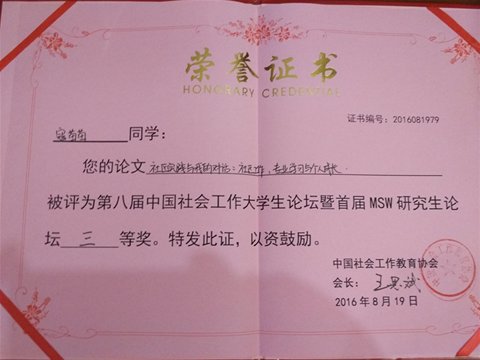 荣誉证书
HONORARY CREDENTIAL
证书编号：2016081979
同学：
您的论文 社区实践与我的对话：社区工作、专业学习与个人成长
被评为第八届中国社会工作大学生论坛暨首届 MSW 研究生论
坛 三 等奖。特发此证，以资鼓励。
中国社会工作教育协会
会长：
2016 年 8 月 19 日